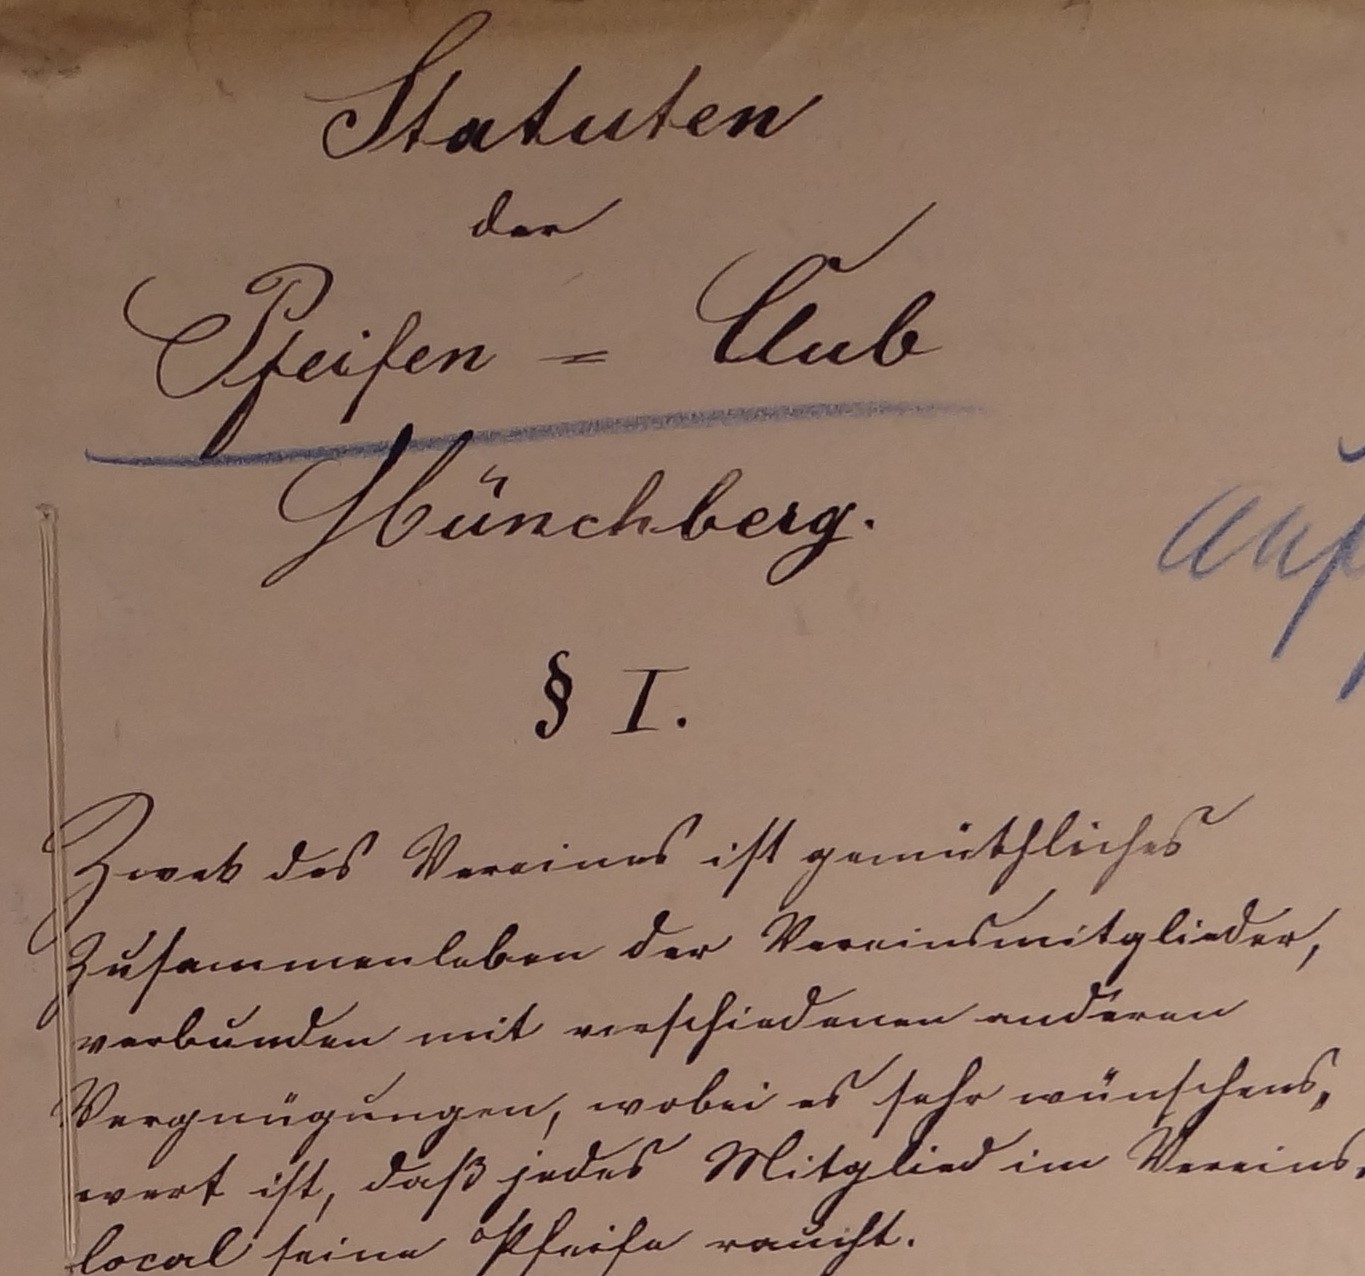 Statuten
der
Pfeifen = Club
Münchberg.
§ I.
Zwek des Vereines ist gemüthliches
Zusammenleben der Vereinsmitglieder,
verbunden mit verschiedenen anderen
Vergnügungen, wobei es sehr wünschens,
wert ist, daß jedes Mitglied im Vereins,
local seine Pfeife raucht.